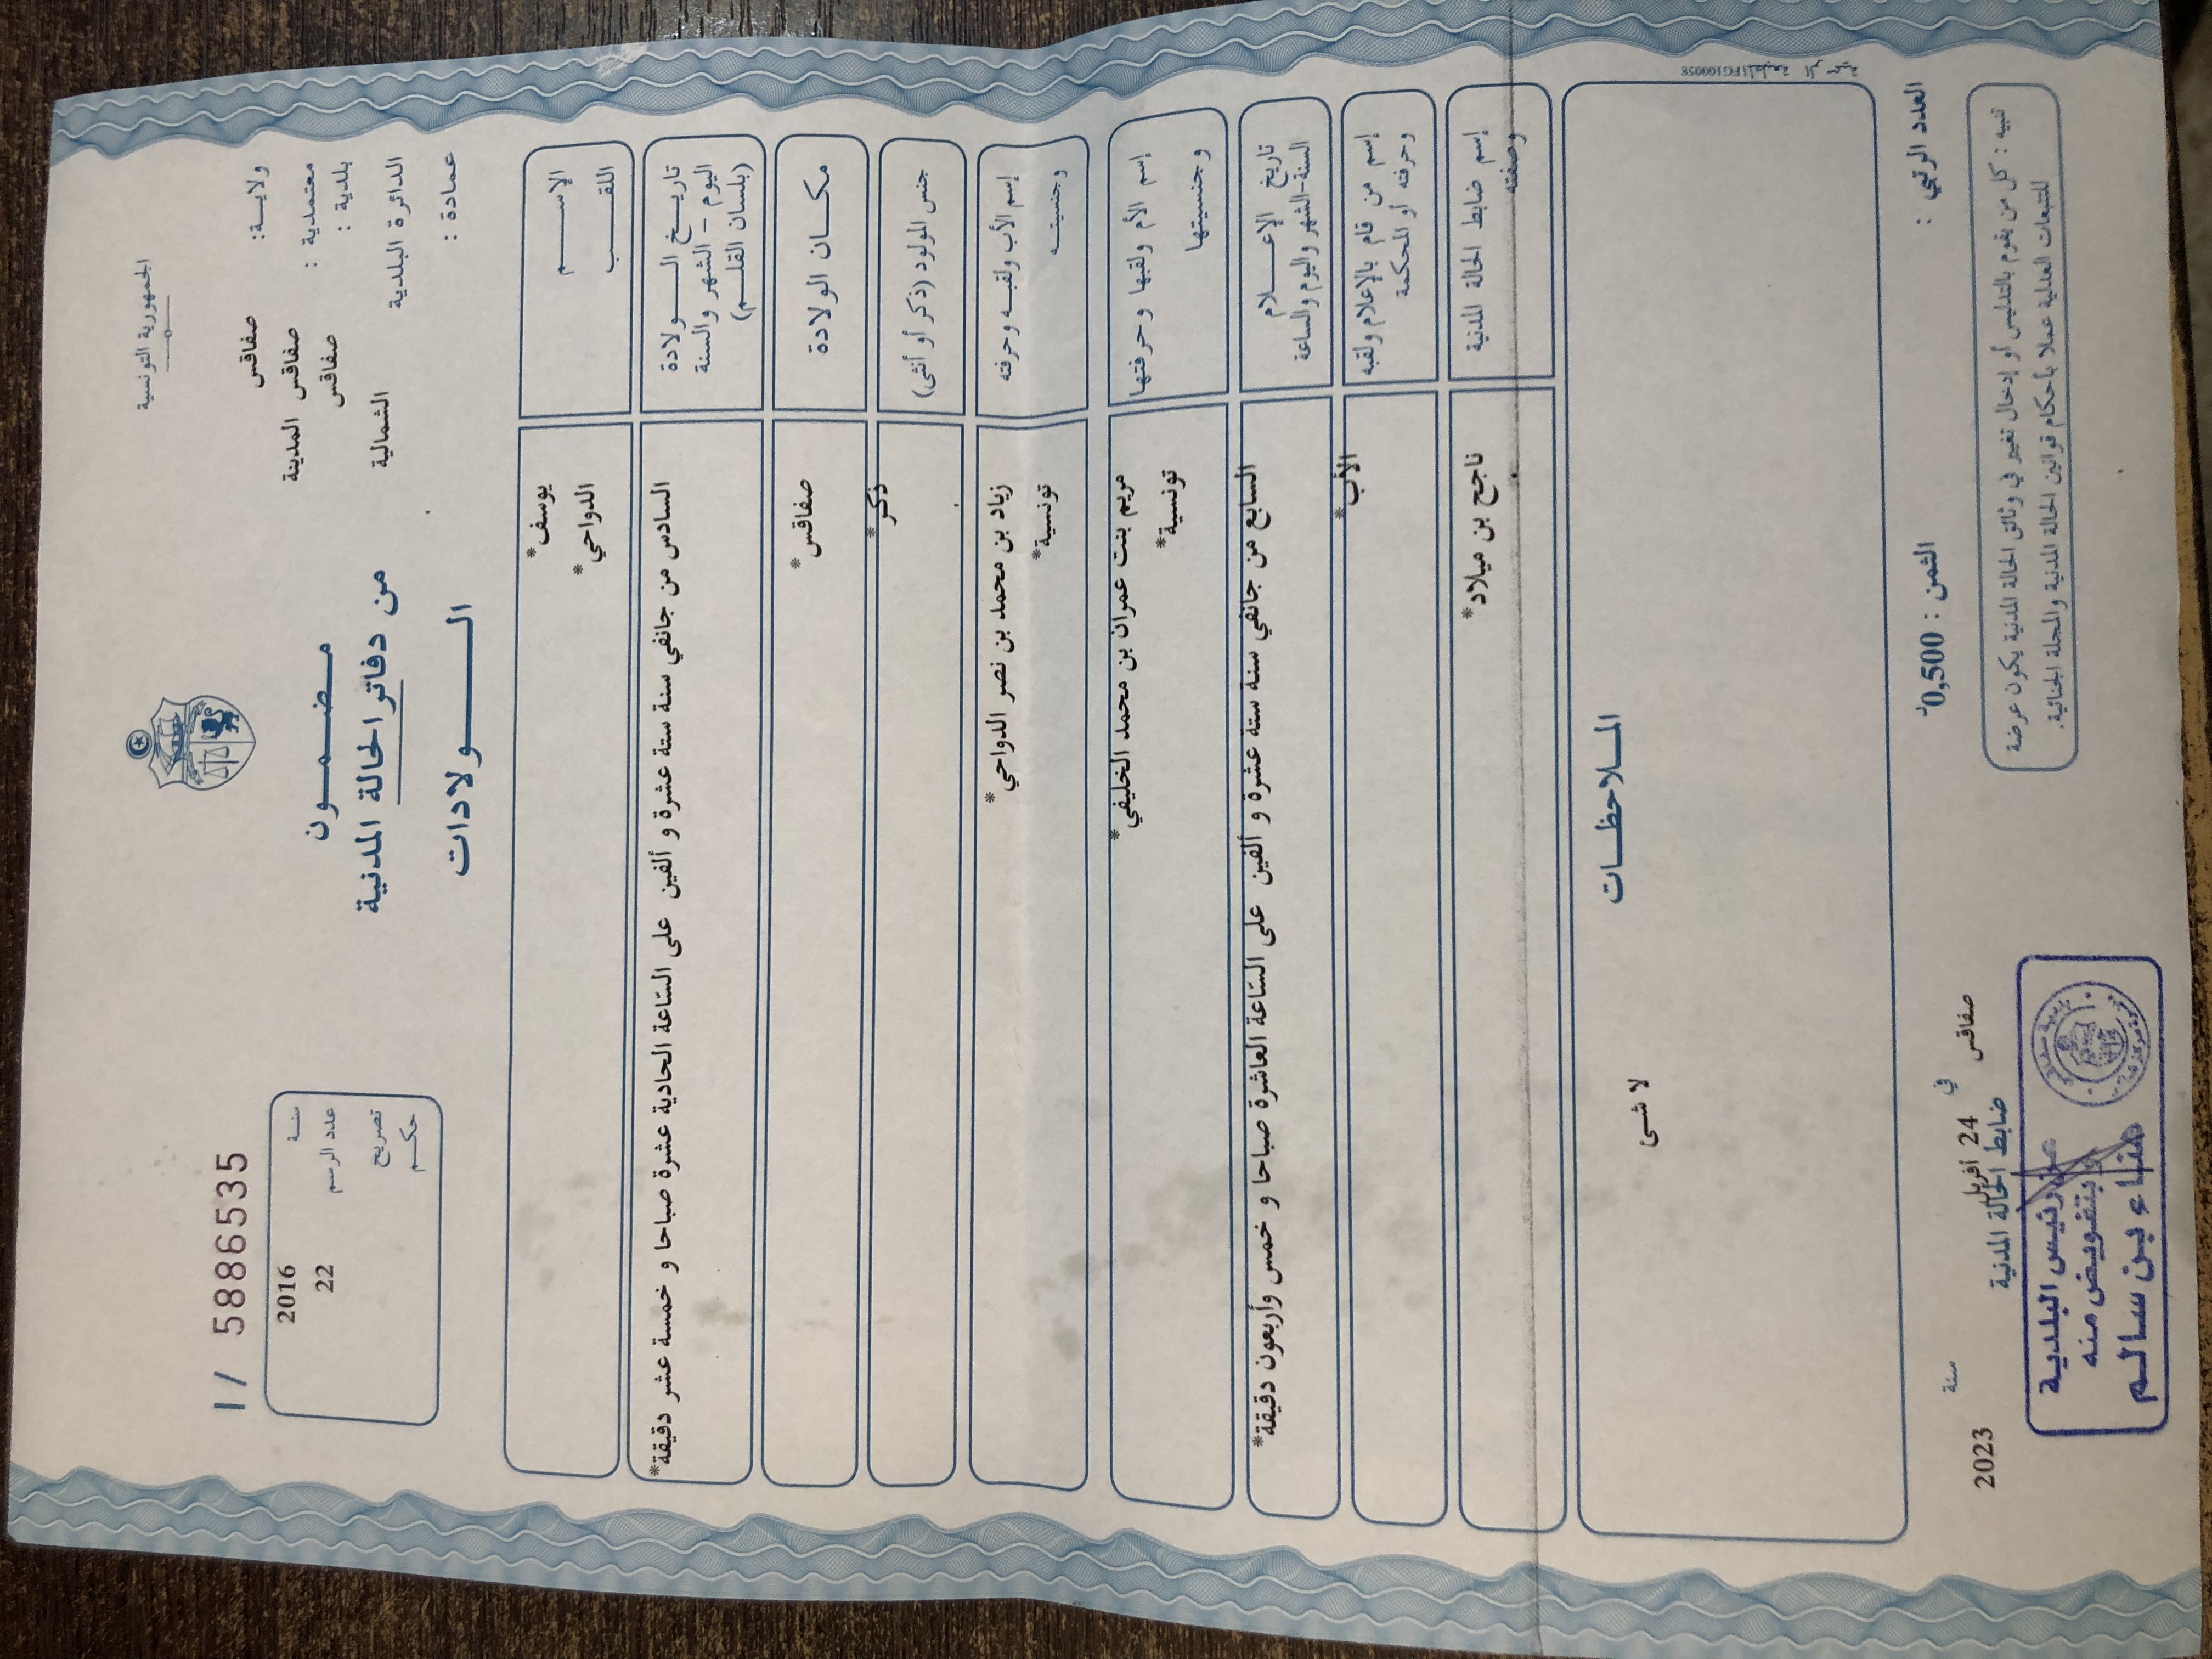 الجمهورية التونسية
ولاية: صفاقس
معتمدية : صفاقس المدينة
بلدية : صفاقس
الدائرة البلدية الشمالية
عمادة :
مضمون
من دفاتر الحالة المدنية
الولادات
I / 58865535
سنة 2016
عدد الرسم 22
تصريح
حكم
الإسم يوسف*
اللقب الدواحي*
تاريخ الولادة السادس من جانفي سنة ستة عشرة و ألفين على الساعة الحادية عشرة صباحا و خمسة عشر دقيقة*
اليوم - الشهر والسنة
(بلسان القلم)
مكان الولادة صفاقس*
جنس المولود (ذكر أو أنثى) ذكر*
إسم الأب ولقبه وحرفته زياد بن محمد بن نصر الدواحي*
وجنسيته تونسية*
إسم الأم ولقبها وحرفتها مريم بنت عمران بن محمد الخليفي*
وجنسيتها تونسية*
تاريخ الإعلام السابع من جانفي سنة ستة عشرة و ألفين على الساعة العاشرة صباحا و خمس وأربعون دقيقة*
السنة-الشهر واليوم والساعة
إسم من قام بالإعلام ولقبه الأب*
وحرفته أو المحكمة
إسم ضابط الحالة المدنية ناجح بن ميلاد*
وصفته
الملاحظات
لا شئ
المطبعة الرسمية FG100058
العدد الرتبي :
الثمن : 0,500د
صفاقس في 24 أفريل سنة 2023
ضابط الحالة المدنية
تنبيه : كل من يقوم بالتدليس أو إدخال تغيير في وثائق الحالة المدنية يكون عرضة
للتتبعات العدلية عملا بأحكام قوانين الحالة المدنية والمجلة الجنائية.
رئيس البلدية
وبتفويض منه
هناء بن سالم